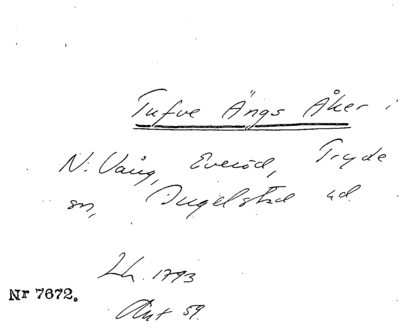 Tufve Ängs Åker i
N. Vång, Everöd, Tryde
sn, Ingelstad hd.
Lh. 1793
Nr 7672.
Akt 59.